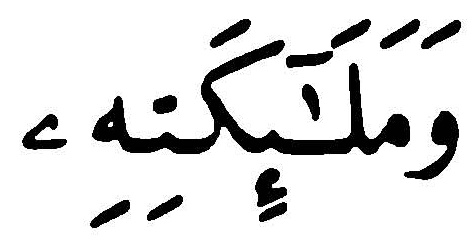 وَمَلَٰٓئِكَتِهِۦ